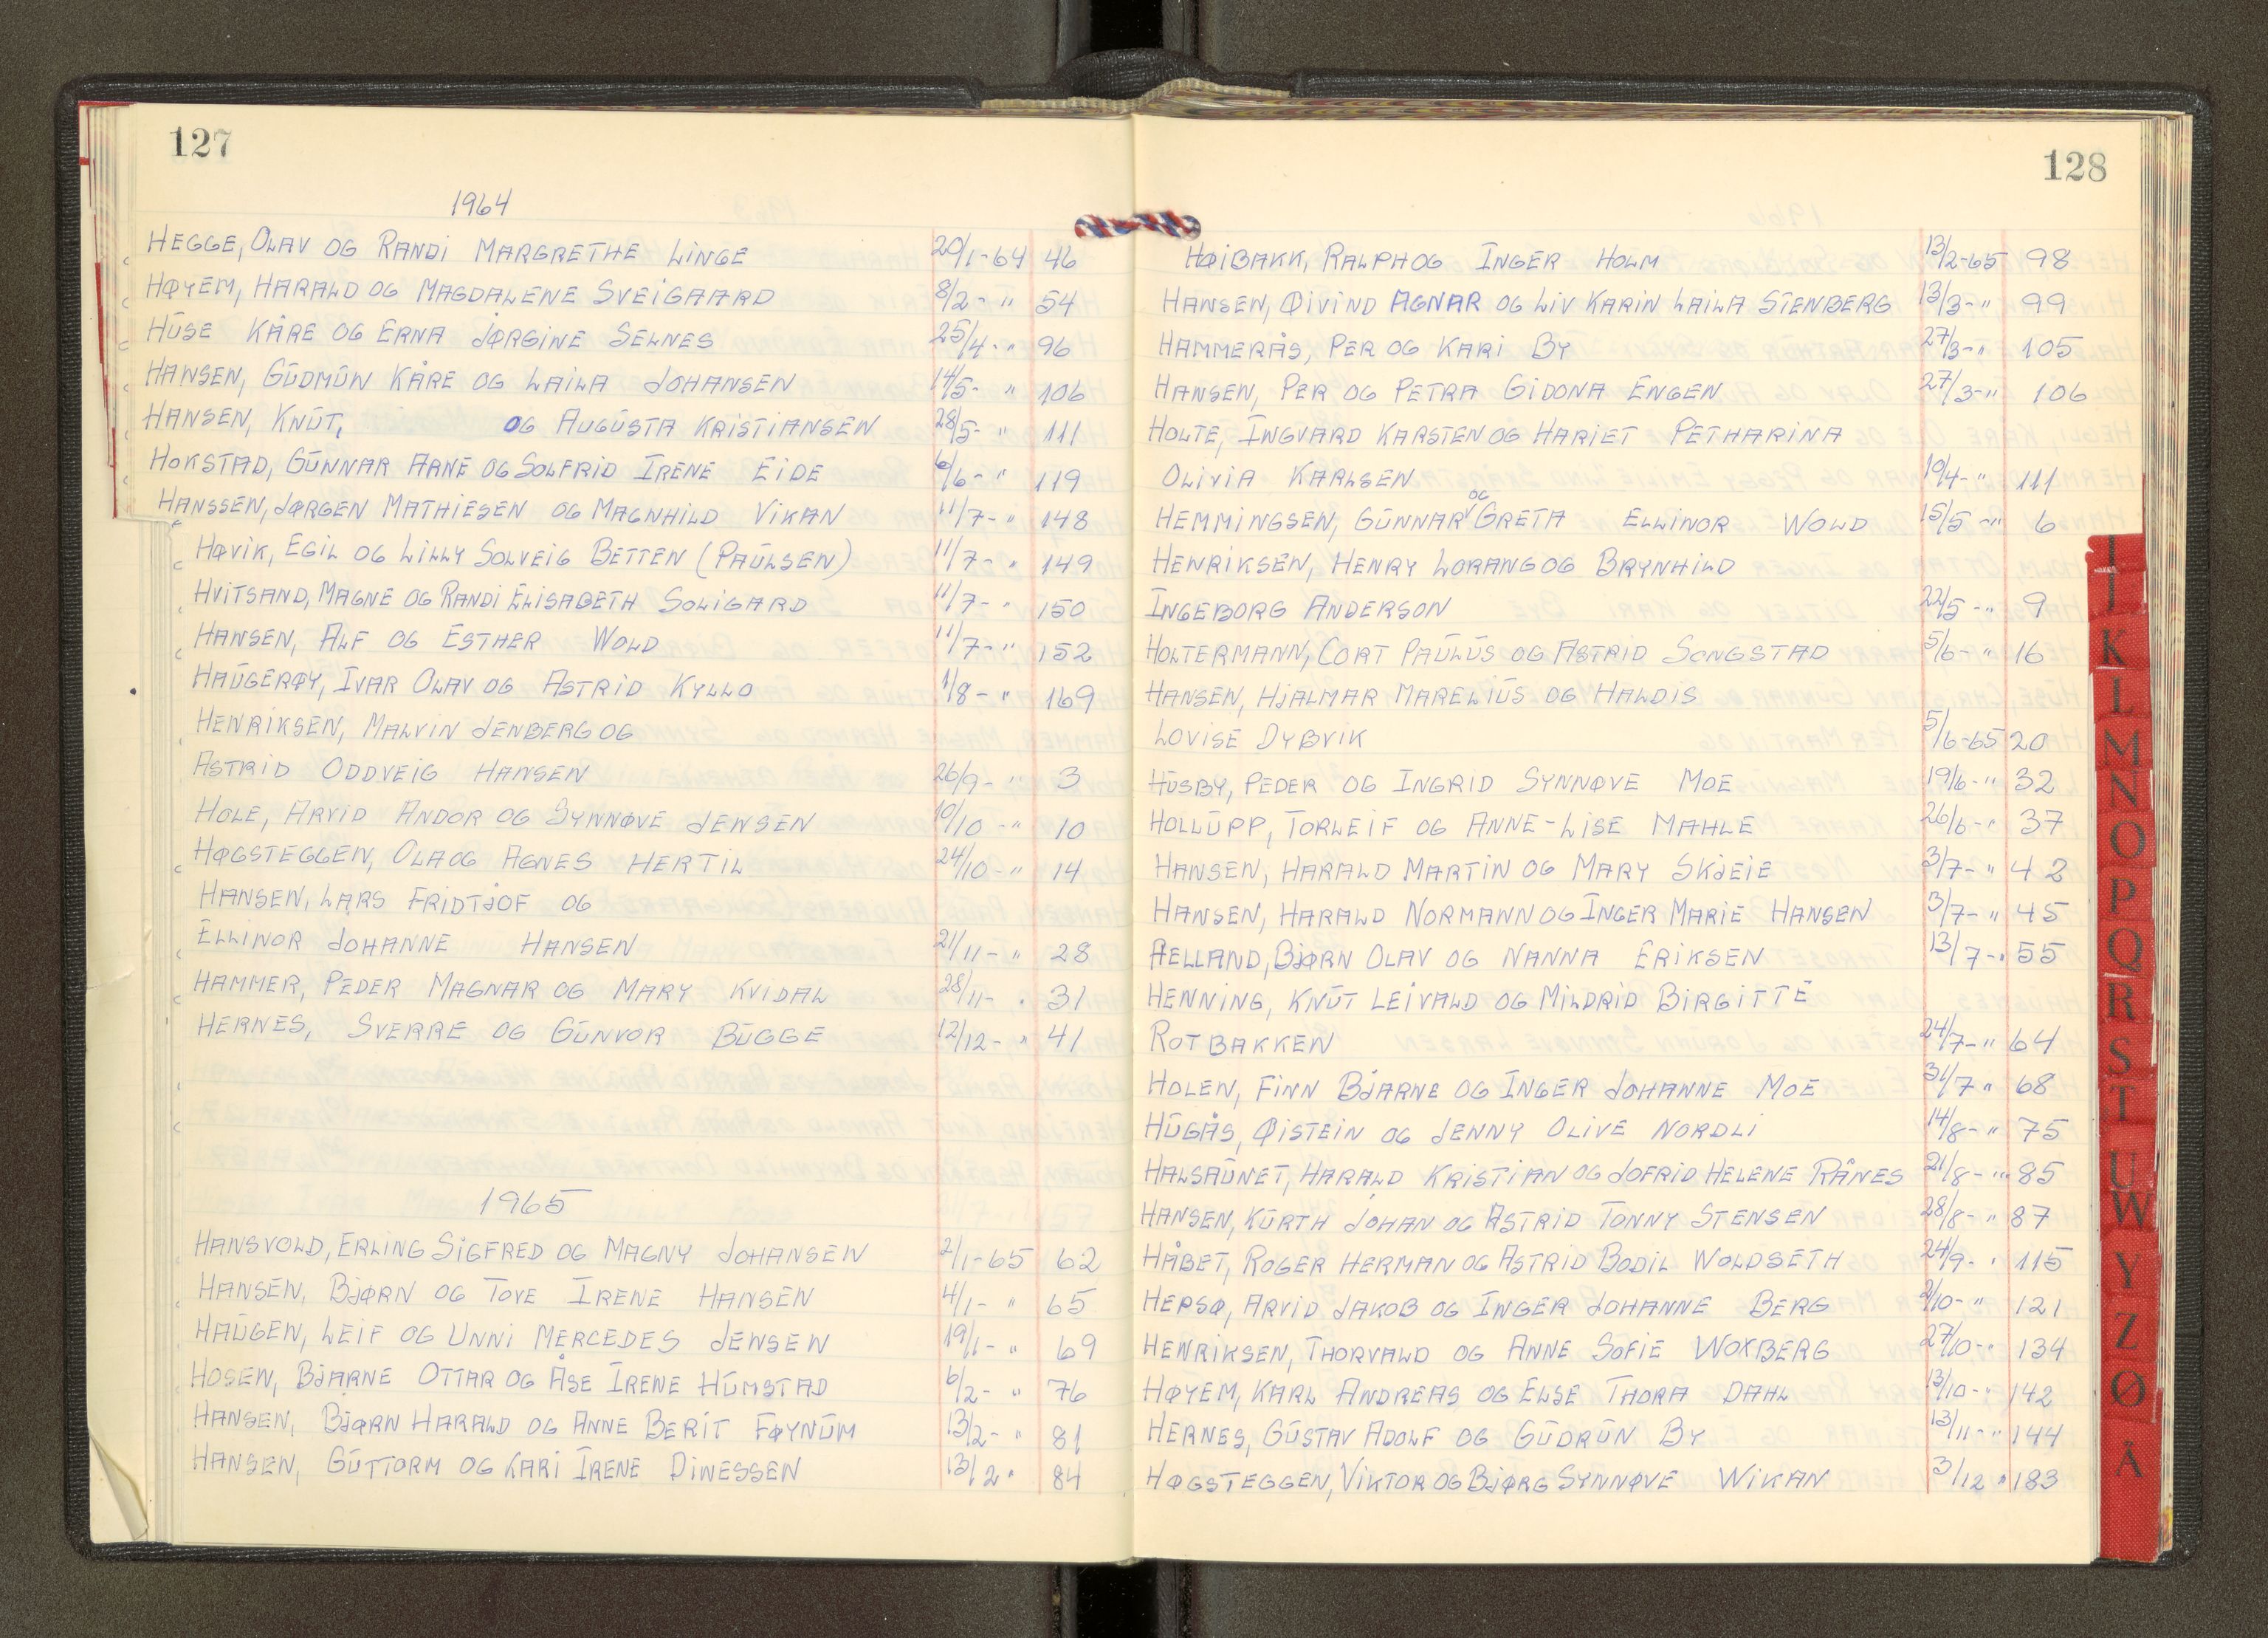 127
1964
HEGGE, OLAV OG RANDI MARGRETHE LINGE 20/1-64 46
HØYEM, HARALD OG MAGDALENE SVEIGAARD 8/2- " 54
HŪSE KÅRE OG ERNA JØRGINE SELNES 25/4- " 96
HANSEN, GŪDMŪN KÅRE OG LAILA JOHANSEN 14/5- " 106
HANSEN, KNŪT, OG AUGŪSTA KRISTIANSEN 28/5- " 111
HOKSTAD, GŪNNAR ARNE OG SOLFRID IRENE EIDE 6/6- " 119
HANSSEN, JØRGEN MATHIESEN OG MAGNHILD VIKAN 11/7- " 148
HØVIK, EGIL OG LILLY SOLVEIG BETTEN (PAŪLSEN) 11/7- " 149
HVITSAND, MAGNE OG RANDI ELISABETH SOLIGARD 11/7- " 150
HANSEN, ALF OG ESTHER WOLD 11/7- " 152
HAŪGERØY, IVAR OLAV OG ASTRID KYLLO 1/8- " 169
HENRIKSEN, MALVIN JENBERG OG
ASTRID ODDVEIG HANSEN 26/9- " 3
HOLE, ARVID ANDOR OG SYNNØVE JENSEN 10/10- " 10
HØGSTEGGEN, OLA OG AGNES HERTIL 24/10- " 14
HANSEN, LARS FRIDTJOF OG
ELLINOR JOHANNE HANSEN 21/11- " 28
HAMMER, PEDER MAGNAR OG MARY KVIDAL 28/11- " 31
HERNES, SVERRE OG GŪNVOR BŪGGE 12/12- " 41
1965
HANSVOLD, ERLING SIGFRED OG MAGNY JOHANSEN 2/1-65 62
HANSEN, BJØRN OG TOVE IRENE HANSEN 4/1- " 65
HAŪGEN, LEIF OG UNNI MERCEDES JENSEN 19/1- " 69
HOSEN, BJARNE OTTAR OG ÅSE IRENE HŪMSTAD 6/2- " 76
HANSEN, BJØRN HARALD OG ANNE BERIT FØYNŪM 13/2- " 81
HANSEN, GŪTTORM OG KARI IRENE DINESSEN 13/2 " 84
128
HØIBAKK, RALPH OG INGER HOLM 13/2-65 98
HANSEN, ØIVIND AGNAR OG LIV KARIN LAILA STENBERG 13/3- " 99
HAMMERÅS, PER OG KARI BY 27/3- " 105
HANSEN, PER OG PETRA GIDONA ENGEN 27/3- " 106
HOLTE, INGVARD KARSTEN OG HARIET PETHARINA
OLIVIA KARLSEN 10/4- " 111
HEMMINGSEN, GŪNNAR OG GRETA ELLINOR WOLD 15/5- " 6
HENRIKSEN, HENRY LORANG OG BRYNHILD
INGEBORG ANDERSON 22/5- " 9
HOLTERMANN, CORT PAŪLŪS OG ASTRID SONGSTAD 5/6- " 16
HANSEN, HJALMAR MARELIŪS OG HALDIS
LOVISE DYBVIK 5/6-65 20
HŪSBY, PEDER OG INGRID SYNNØVE MOE 19/6- " 32
HOLLŪPP, TORLEIF OG ANNE-LISE MAHLE 26/6- " 37
HANSEN, HARALD MARTIN OG MARY SKJEIE 3/7- " 42
HANSEN, HARALD NORMANN OG INGER MARIE HANSEN 3/7- " 45
HELLAND, BJØRN OLAV OG NANNA ERIKSEN 13/7- " 55
HENNING, KNŪT LEIVALD OG MILDRID BIRGITTE
ROTBAKKEN 24/7- " 64
HOLEN, FINN BJARNE OG INGER JOHANNE MOE 31/7 " 68
HŪGÅS, ØISTEIN OG JENNY OLIVE NORDLI 14/8- " 75
HALSAŪNET, HARALD KRISTIAN OG JOFRID HELENE RÅNES 21/8- " 85
HANSEN, KŪRTH JOHAN OG ASTRID TONNY STENSEN 28/8- " 87
HÅBET, ROGER HERMAN OG ASTRID BODIL WOLDSETH 24/9- " 115
HEPSØ, ARVID JAKOB OG INGER JOHANNE BERG /10- " 121
HENRIKSEN, THORVALD OG ANNE SOFIE WOXBERG 27/10- " 134
HØYEM, KARL ANDREAS OG ELSE THORA DAHL 13/10- " 142
HERNES, GŪSTAV ADOLF OG GŪDRŪN BY 13/11- " 144
HØGSTEGGEN, VIKTOR OG BJØRG SYNNØVE WIKAN 3/12 " 183
I
K
L
M
N
O
P
Q
R
S
T
U
W
Y
Z
Ø